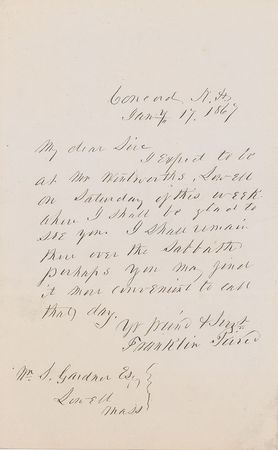 Concord, N. H.
Jany 17, 1867
My dear Sir
I expect to be
at Mr Wentworth's, Lowell
on Saturday of this week
where I shall be glad to
see you. I shall remain
there over the Sabbath
perhaps you may find
it more convenient to call
that day.
Yr friend & Servt
Franklin Pierce
Wm S. Gardner Esq
Lowell
Mass